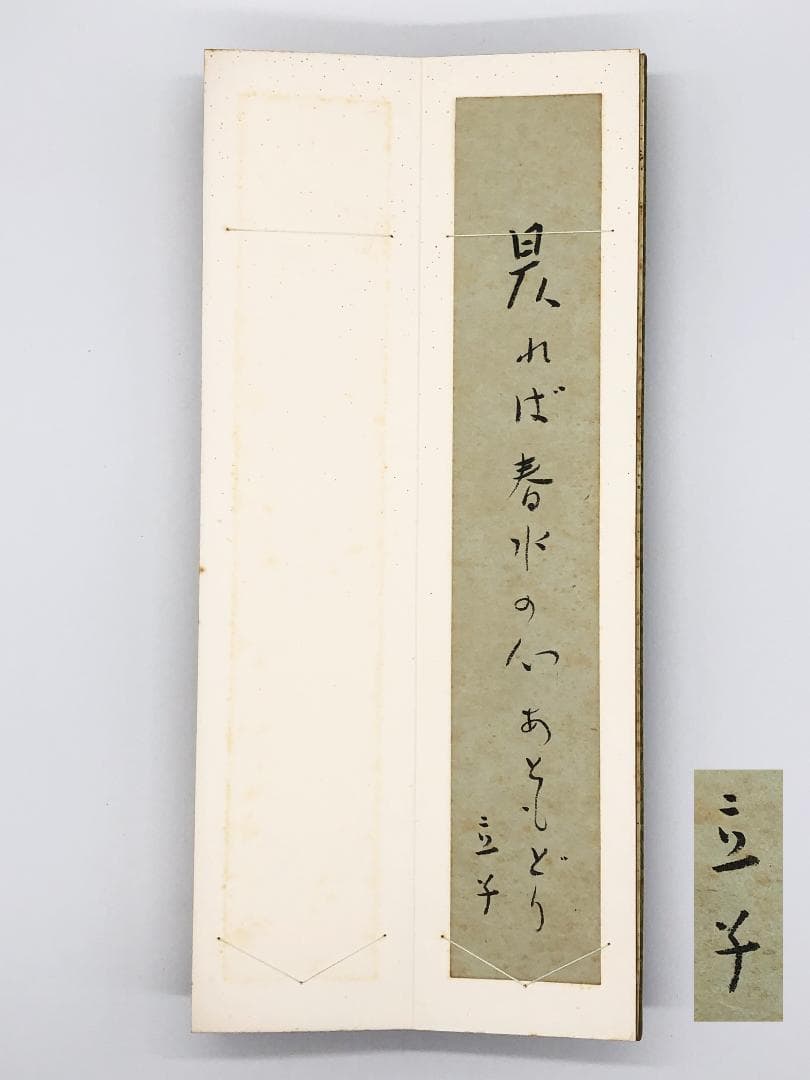 昃れば春水の心あともどり
立子
立子